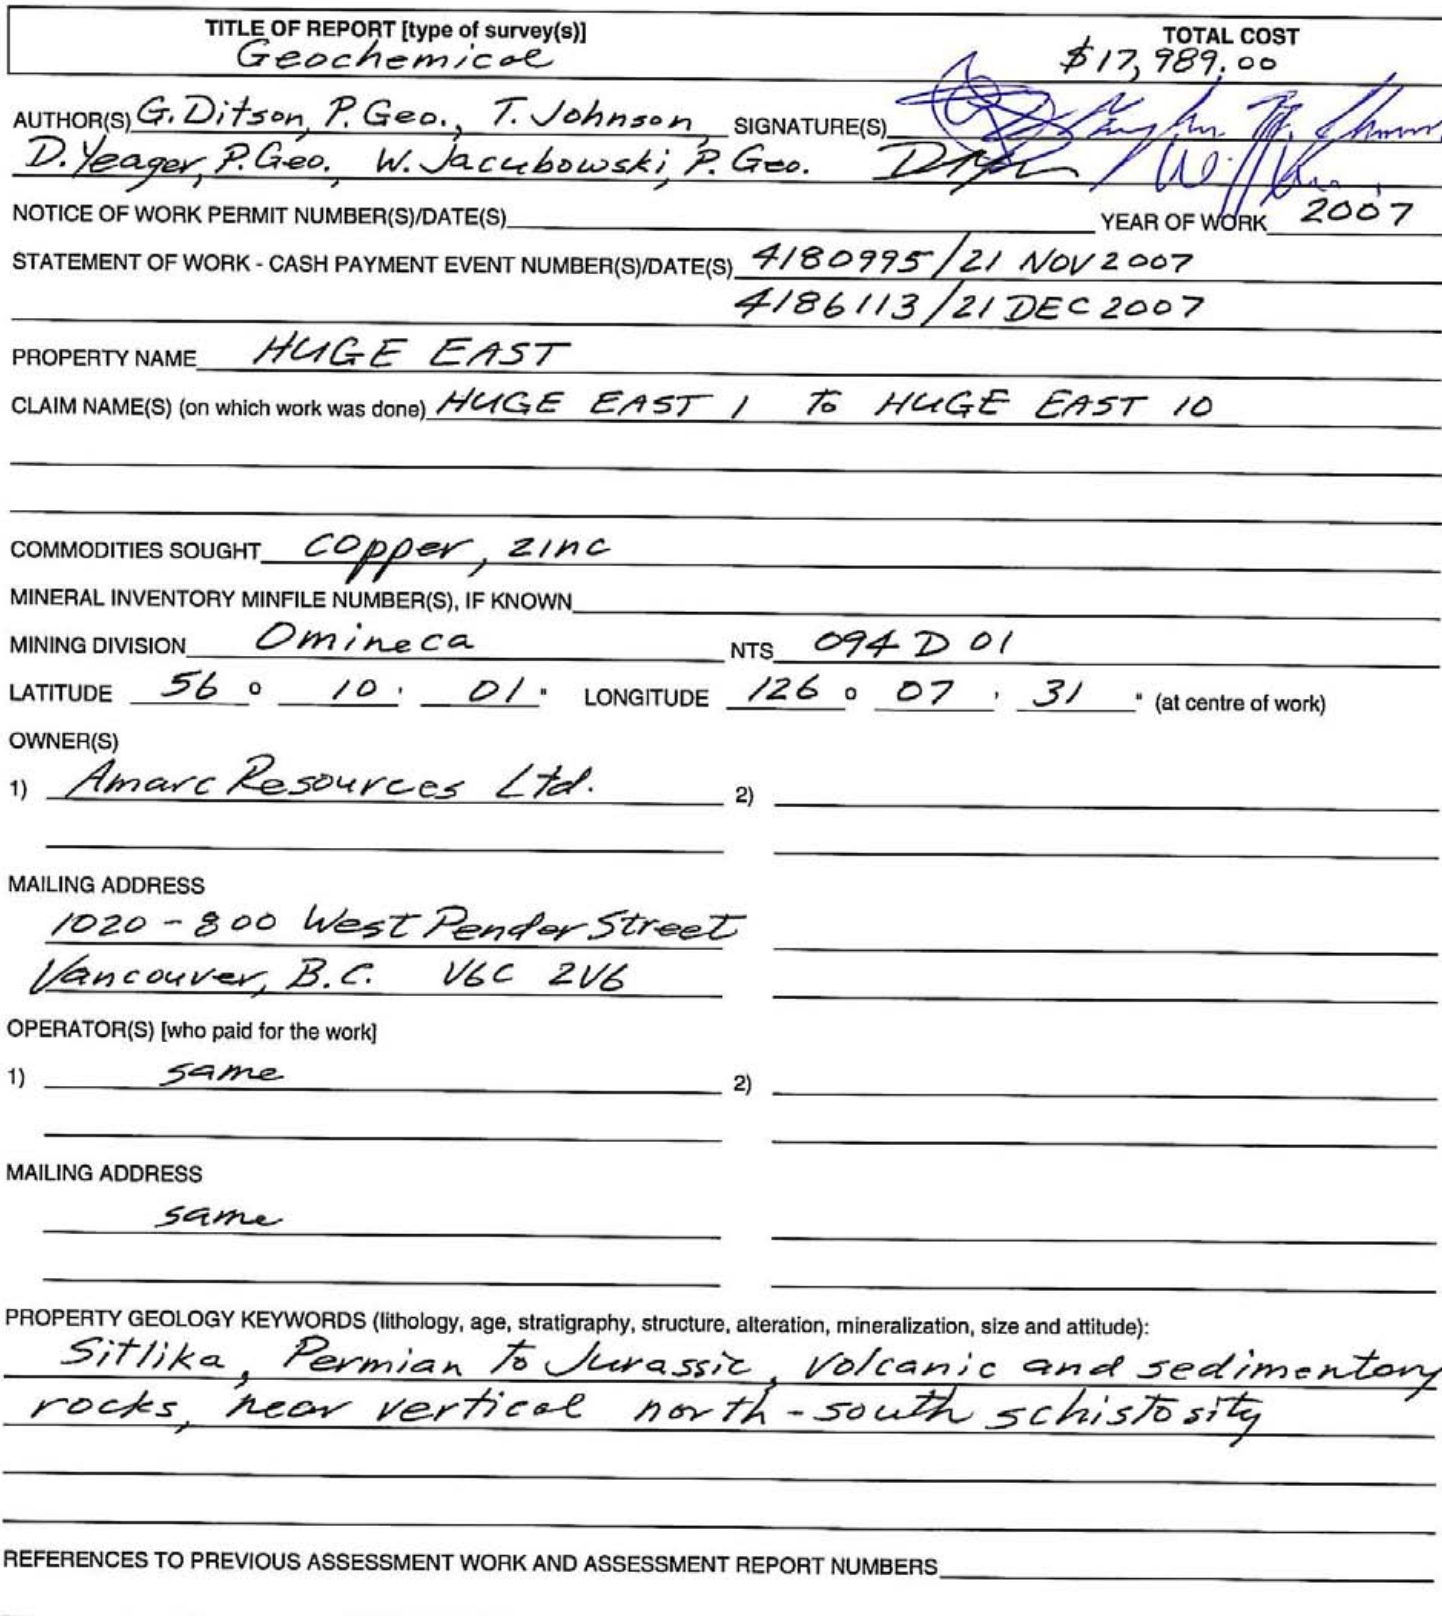 TITLE OF REPORT [type of survey(s)] TOTAL COST
Geochemical $17,989.00
AUTHOR(S) G. Ditson, P. Geo., T. Johnson, SIGNATURE(S)
D. Yeager, P. Geo., W. Jacubowski, P. Geo.
NOTICE OF WORK PERMIT NUMBER(S)/DATE(S) YEAR OF WORK 2007
STATEMENT OF WORK - CASH PAYMENT EVENT NUMBER(S)/DATE(S) 4180995/21 NOV 2007
4186113/21 DEC 2007
PROPERTY NAME HUGE EAST
CLAIM NAME(S) (on which work was done) HUGE EAST 1 to HUGE EAST 10
COMMODITIES SOUGHT copper, zinc
MINERAL INVENTORY MINFILE NUMBER(S), IF KNOWN
MINING DIVISION Omineca NTS 094 D 01
LATITUDE 56 o 10 ' 01 " LONGITUDE 126 o 07 ' 31 " (at centre of work)
OWNER(S)
1) Amarc Resources Ltd. 2)
MAILING ADDRESS
1020 - 800 West Pender Street
Vancouver, B.C. V6C 2V6
OPERATOR(S) [who paid for the work]
1) same 2)
MAILING ADDRESS
same
PROPERTY GEOLOGY KEYWORDS (lithology, age, stratigraphy, structure, alteration, mineralization, size and attitude):
Sitlika, Permian to Jurassic, volcanic and sedimentary
rocks, near vertical north-south schistosity
REFERENCES TO PREVIOUS ASSESSMENT WORK AND ASSESSMENT REPORT NUMBERS